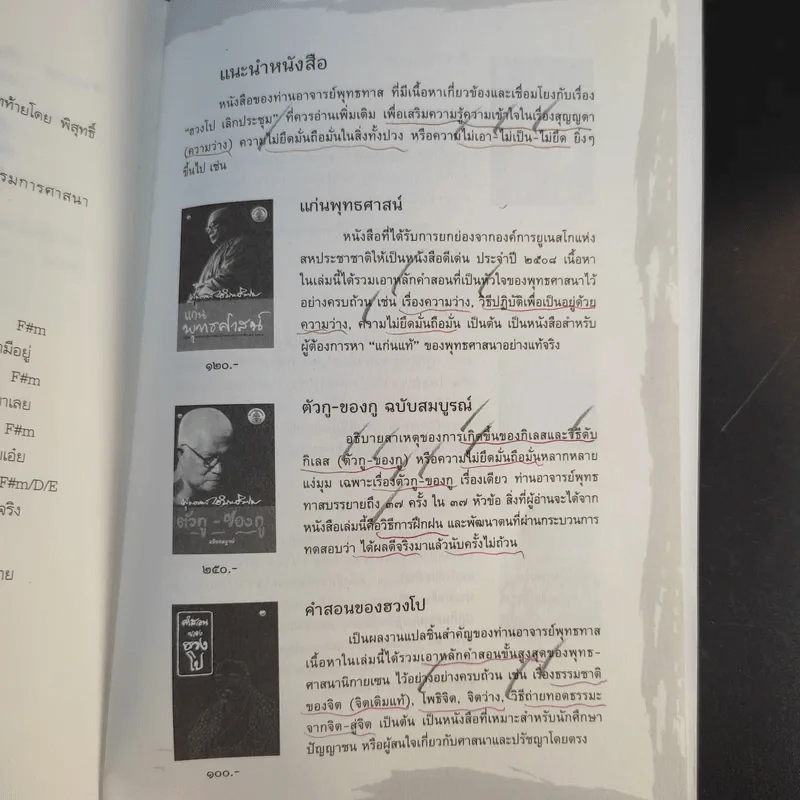 าท้ายโดย พิสุทธิ์
รมการศาสนา
F#m
ามีอยู่
F#m
าเลย
F#m
F#m/D/E
จริง
าย
แนะนำหนังสือ
หนังสือของท่านอาจารย์พุทธทาส ที่มีเนื้อหาเกี่ยวข้องและเชื่อมโยงกับเรื่อง
“ฮวงโป เลิกประชุม” ที่ควรอ่านเพิ่มเติม เพื่อเสริมความรู้ความเข้าใจในเรื่องสุญญตา
(ความว่าง) ความไม่ยึดมั่นถือมั่นในสิ่งทั้งปวง หรือความไม่เอา-ไม่เป็น-ไม่ยึด ยิ่งๆ
ขึ้นไป เช่น
แก่นพุทธศาสน์
หนังสือที่ได้รับการยกย่องจากองค์การยูเนสโกแห่ง
สหประชาชาติให้เป็นหนังสือดีเด่น ประจำปี ๒๕๐๘ เนื้อหา
ในเล่มนี้ได้รวมเอาหลักคำสอนที่เป็นหัวใจของพุทธศาสนาไว้
อย่างครบถ้วน เช่น เรื่องความว่าง, วิธีปฏิบัติเพื่อเป็นอยู่ด้วย
ความว่าง, ความไม่ยึดมั่นถือมั่น เป็นต้น เป็นหนังสือสำหรับ
ผู้ต้องการหา “แก่นแท้” ของพุทธศาสนาอย่างแท้จริง
แก่น
พุทธศาสน์
๑๒๐.-
ตัวกู-ของกู ฉบับสมบูรณ์
อธิบายสาเหตุของการเกิดขึ้นของกิเลสและวิธีดับ
กิเลส (ตัวกู-ของกู) หรือความไม่ยึดมั่นถือมั่นหลากหลาย
แง่มุม เฉพาะเรื่องตัวกู-ของกู เรื่องเดียว ท่านอาจารย์พุทธ
ทาสบรรยายถึง ๓๗ ครั้ง ใน ๓๗ หัวข้อ สิ่งที่ผู้อ่านจะได้จาก
หนังสือเล่มนี้คือวิธีการฝึกฝน และพัฒนาตนที่ผ่านกระบวนการ
ทดสอบว่า ได้ผลดีจริงมาแล้วนับครั้งไม่ถ้วน
ตัวกู - ของกู
ฉบับสมบูรณ์
๒๕๐.-
คำสอนของฮวงโป
เป็นผลงานแปลชิ้นสำคัญของท่านอาจารย์พุทธทาส
เนื้อหาในเล่มนี้ได้รวมเอาหลักคำสอนขั้นสูงสุดของพุทธ-
ศาสนานิกายเซน ไว้อย่างอย่างครบถ้วน เช่น เรื่องธรรมชาติ
ของจิต (จิตเดิมแท้), โพธิจิต, จิตว่าง, วิธีถ่ายทอดธรรมะ
จากจิต-สู่จิต เป็นต้น เป็นหนังสือที่เหมาะสำหรับนักศึกษา
ปัญญาชน หรือผู้สนใจเกี่ยวกับศาสนาและปรัชญาโดยตรง
คำสอน
ของ
ฮวง
โป
๑๐๐.-